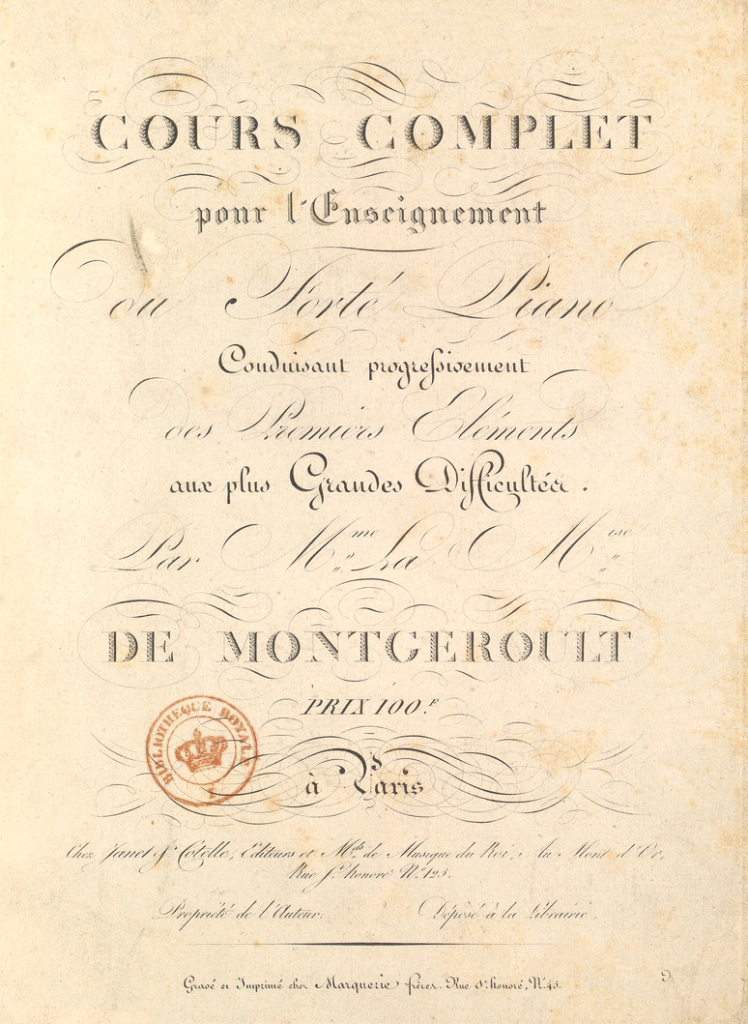 COURS COMPLET
pour l'Enseignement
du Forté Piano
Conduisant progressivement
des Premiers Eléments
aux plus Grandes Difficultés.
Par M.me La M.ise
DE MONTGEROULT
PRIX 100.F
à Paris
BIBLIOTHEQUE ROYALE
Chez Janet & Cotelle, Editeurs et M.ds de Musique du Roi, Au Mont d'Or,
Rue S.t honoré N.o 125.
Propriété de l'Auteur. Déposé à la Librairie.
Gravé et Imprimé chez Marquerie frères. Rue S.t honoré, N.o 45.